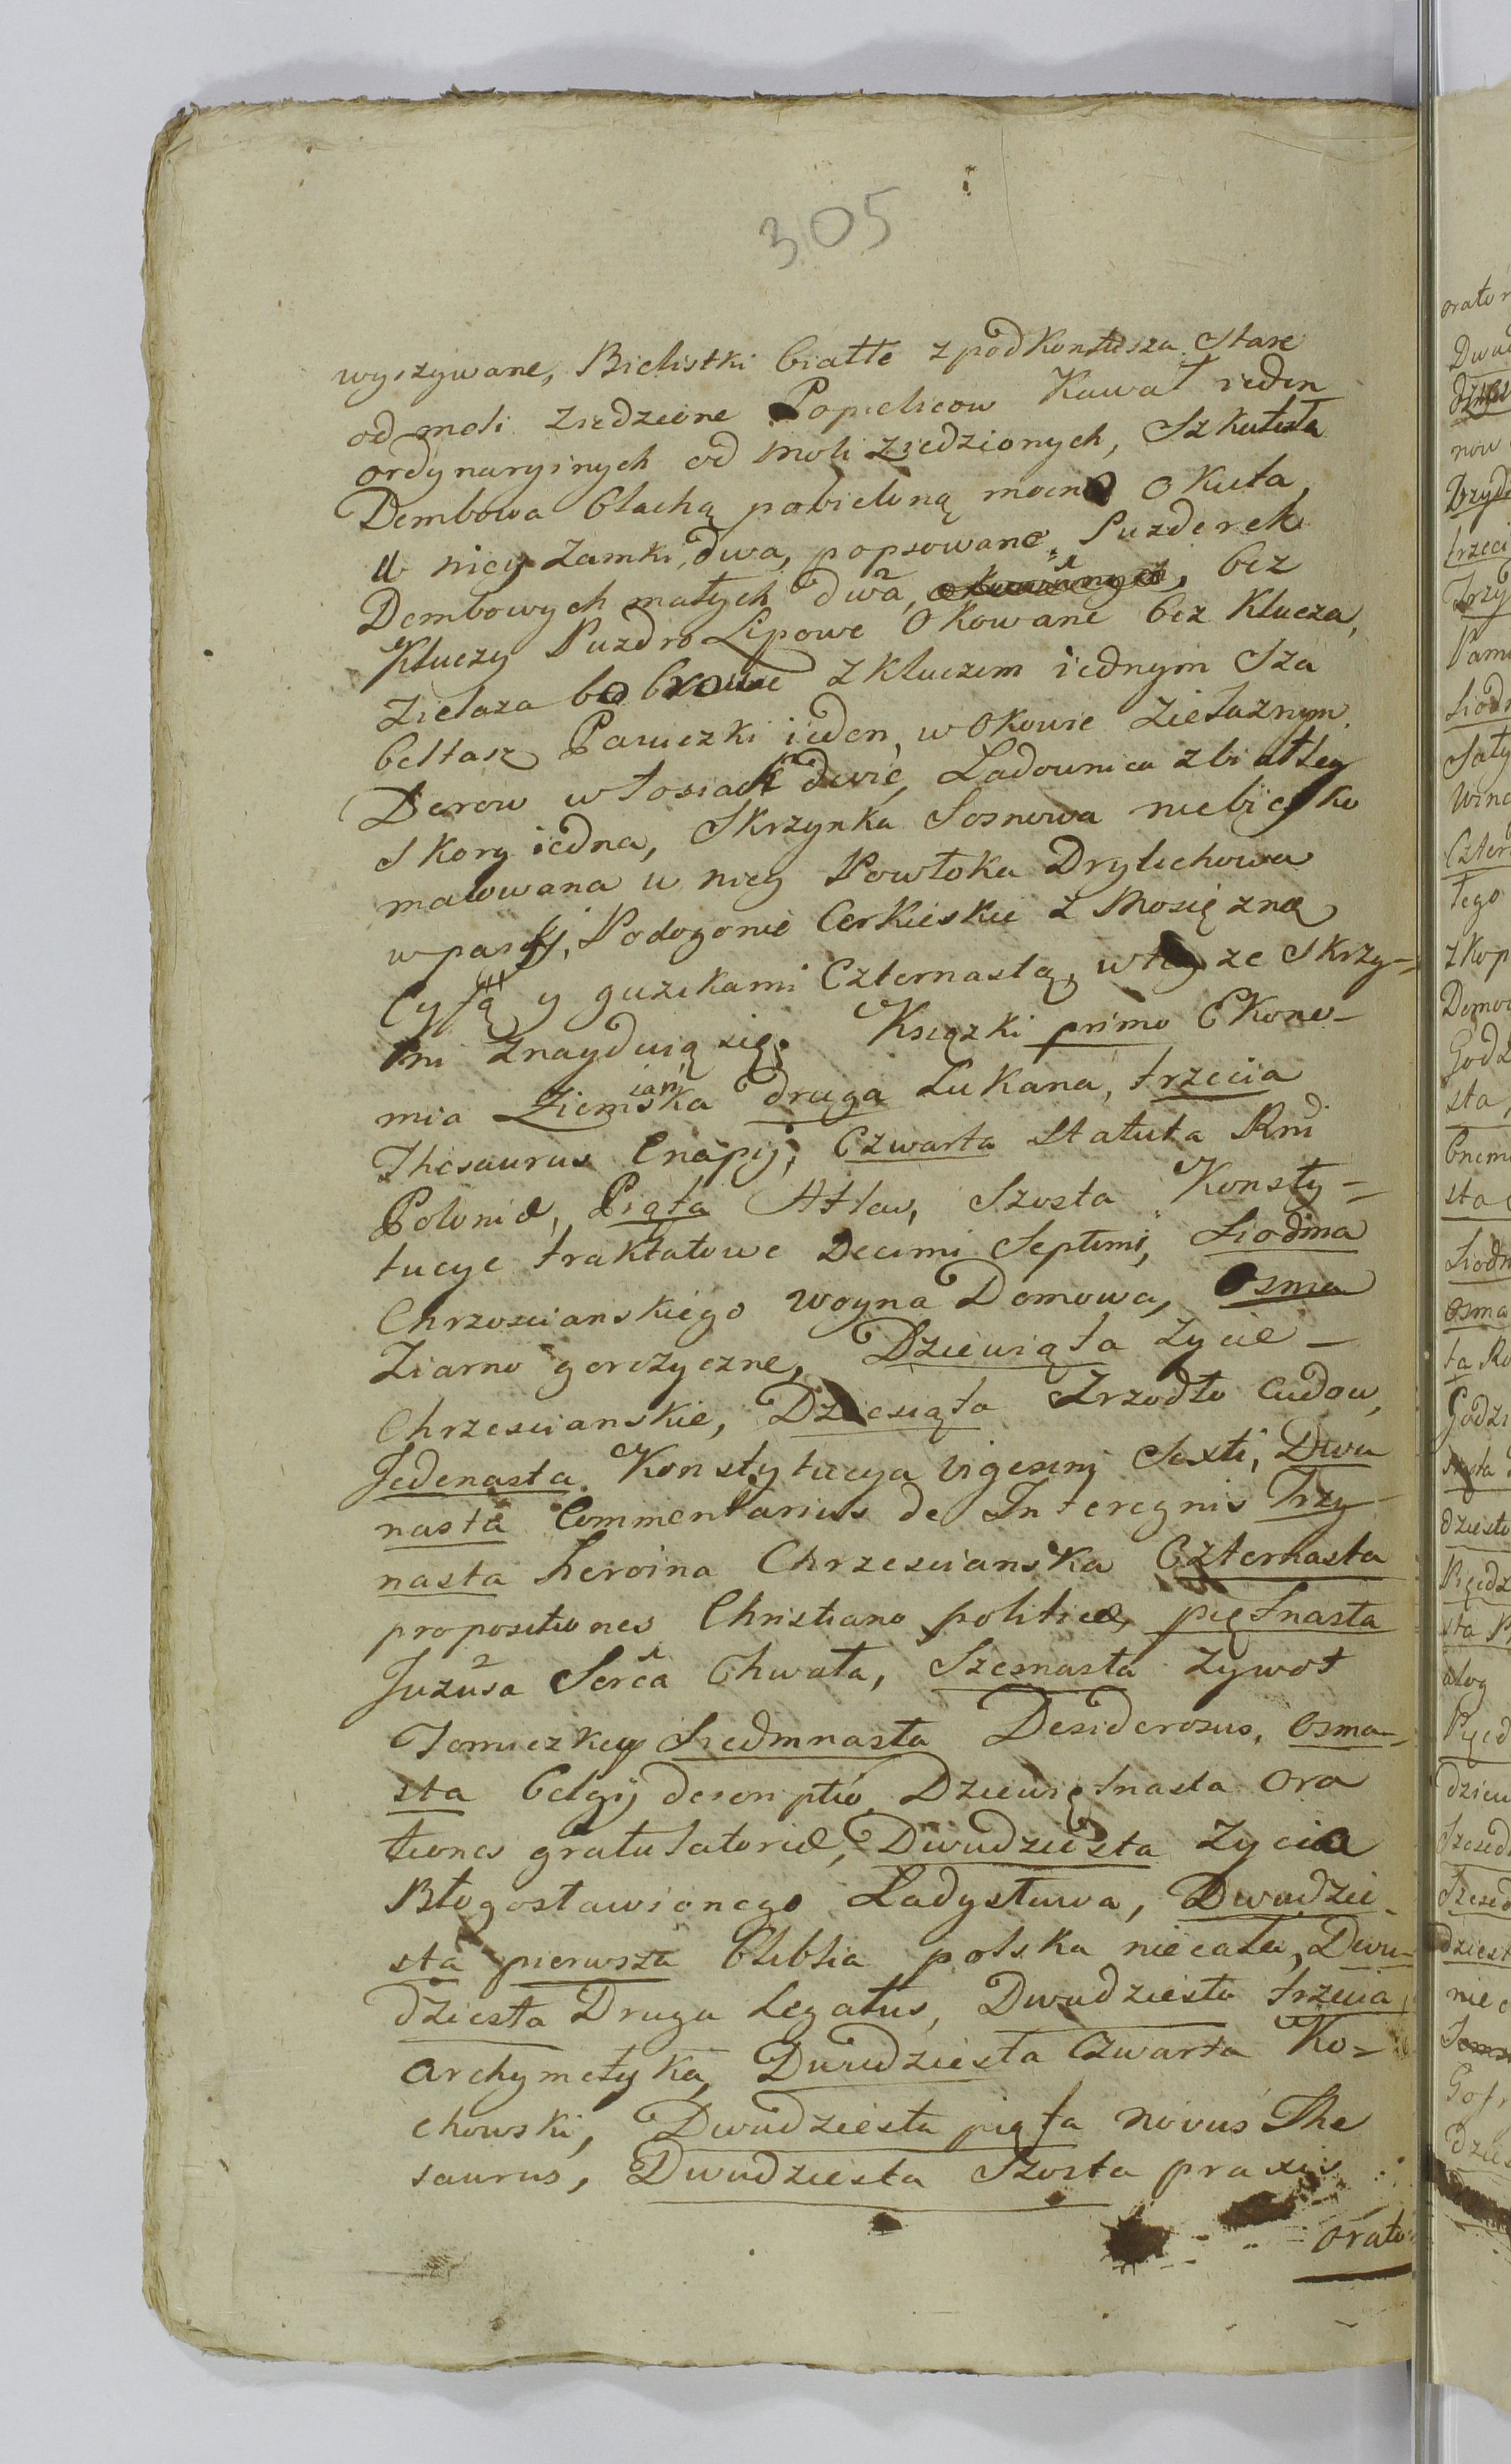 305
wyszywane, Bielistki białłe z pod Kontusza Stare
od moli ziedzione Popielicow Kawał ieden
ordynaryinych od moli ziedzionych, Szkatuła
Dembowa blachą pobieloną mocno okuta,
u niey zamki dwa, popsowane, Puzderek
Dembowych małych dwa, bez
Kluczy Puzdro Lipowe Okowane bez Klucza,
Zielaza bobrowe z Kluczem iednym Sza
beltasz Paruczki ieden, w okowie Zielaznym
Derow włosiach dwie, Ladownica z białłey
Skory iedna, Skrzynka Sosnowa niebiesko
malowana w niey Powłoka Drylichowa
w pasy, Podogonie Cerkieskie z Mosięzną
y guzikami Czternastą, w teyze Skrzy-
ni znayduią się. Ksiązki primo Ekono-
mia Ziemiańska druga Lukana, trzecia
Thesaurus Cnapij, Czwarta Statuta Rni
Poloniæ, Piąta Atlas, Szosta Konsty-
tucye traktatowe Decimi Septimi, Siodma
Chrzoscianskiego woyna Domowa, Osma
Ziarno gorczyczne, Dziewiąta zycie -
Chrzescianskie, Dziesiąta Zrzodło cudow,
Jedenasta Konstytucya Vigesimi Sexti, Dwu
nasta Commentarius de Interegnis Trzy
nasta heroina Chrzescianska Czternasta
propositiones Christiano politicæ, piętnasta
Juzusa Serca Chwała, Szesnasta zywot
Tomiczkey Siedmnasta Desiderosus, Osma-
sta Belgij descriptio Dziewiętnasta Ora
tiones gratulatoriæ, Dwudziesta zycie
Błogosławionego Ladysława, Dwudzie
sta pierwsza Biblia polska niecała, Dwu-
dziesta Druga Legatus, Dwudziesta trzecia
Archymetyka, Dwudziesta Czwarta Ko-
chowski, Dwudziesta piąta novus The
saurus, Dwudziesta Szosta praxis
orato